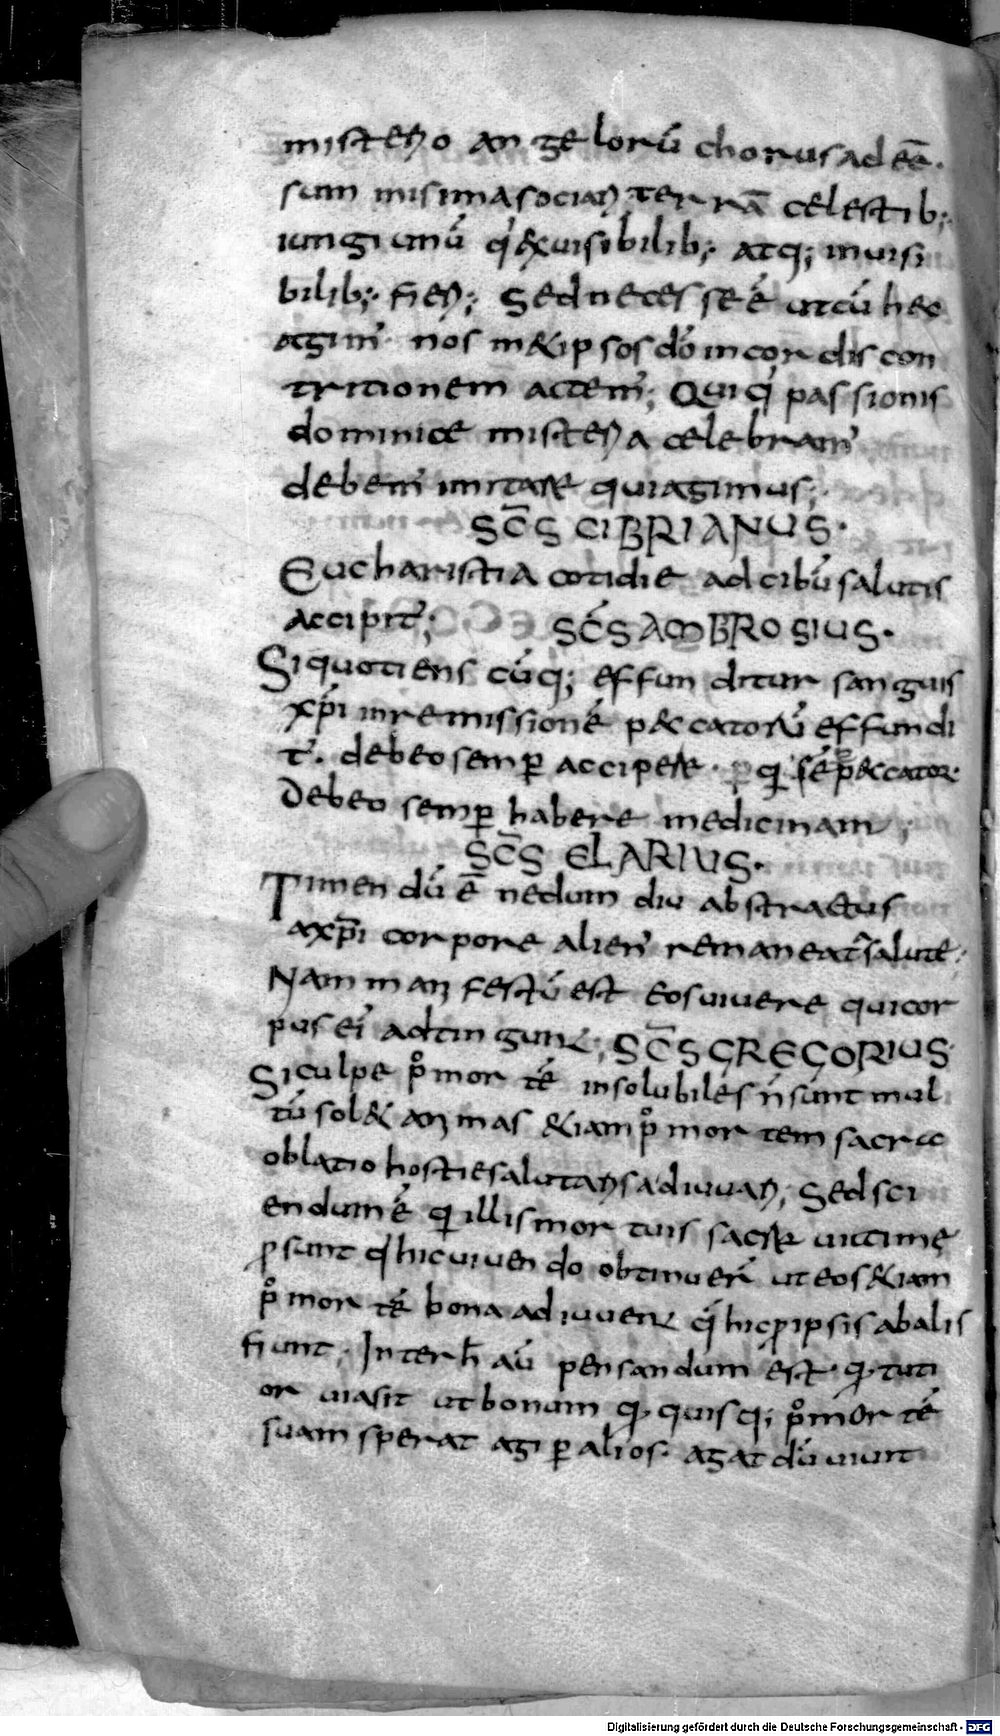 misterio angelorū chorus adeē·
sum mis ima sociari· terrā celestib;·
iungi unū q̇ ex uisibilib;· atq; inuisi
bilib;· fieri;· Sed necesse ē ut cū hec
agim̄· nos met ipsos dō in cordis con
tritionem actem̄; Qui q̇ passionis
dominice misteria celebram̄
debem̄ imitare qui agimus;·
SC̄S CIBRIANUS·
Eucharistia cotidie ad cibū salutis
accipit̄;
SC̄S AMBROSIUS·
Si quotienscūq; effunditur sanguis
xp̄i in remissionē peccatorū effundi
t̄· debeo semp̄ accipere· q̇ sēp̄ peccator·
Debeo semp̄ habere medicinam;
SC̄S ELARIUS·
Timendū ē nedum diu abstractus
a xp̄i corpore alien̄ remaneat salutē;
Nam manifestū est eos uiuere qui cor
pus ei᾿ adtingunt; SC̄S GREGORIUS·
Si culpe p̊ mortē insolubiles n̄ sunt mul
tū solet animas etiam p̊ mortem sacra
oblatio hostie salutaris adiuuari; Sed sci
endum ē q̇ illis mortuis sacre uictime
p̄sunt q̇ hic uiuendo obtinuer̄ ut eos etiam
p̊ mortē bona adiuuent q̇ hic p̄ ipsis ab alis
fiunt; Inter h̄ aū pensandum est· q̇ tuti
or uia sit ut bonum q̇ quisq; p̊ mortē
suam sperat agi p̄ alios· agat dū uiuit